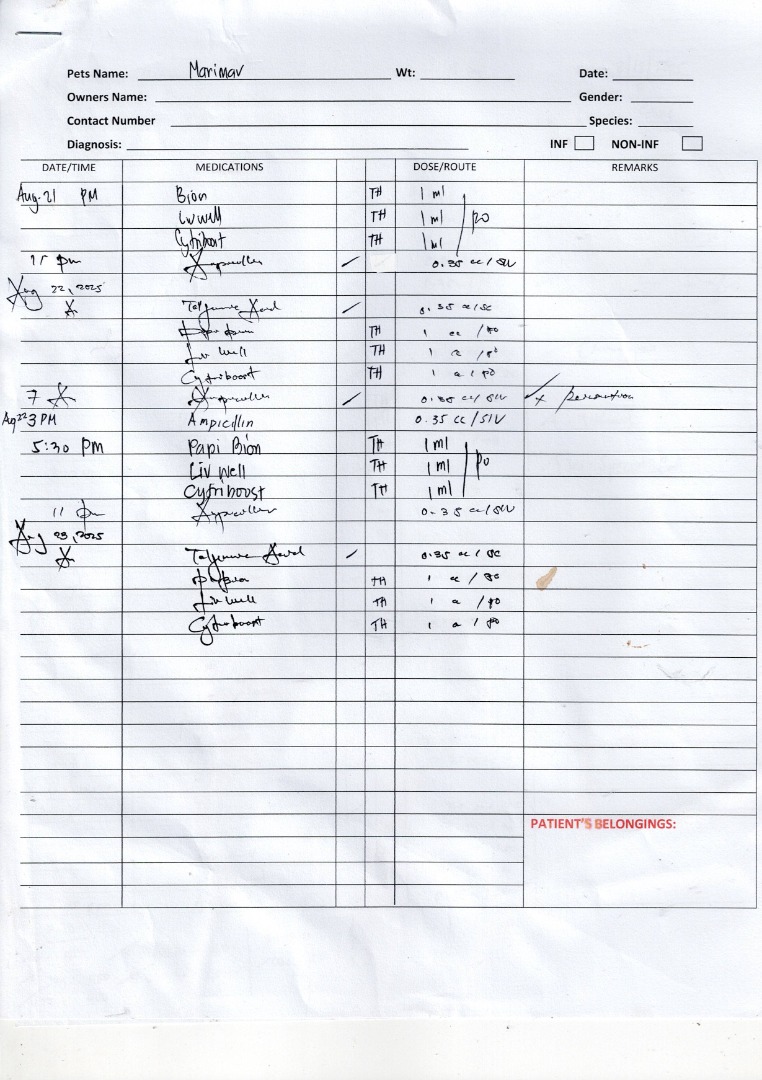 Pets Name: Marimar Wt: Date:
Owners Name: Gender:
Contact Number Species:
Diagnosis: INF NON-INF
DATE/TIME MEDICATIONS DOSE/ROUTE REMARKS
Aug. 21 PM Bion TH 1 ml
Livwell TH 1 ml PO
Cytriboost TH 1 ml
11 pm 0.35 cc/SIV
Aug 22, 2025
0.35 cc/SC
TH 1 cc /PO
Liv well TH 1 cc /PO
Cytriboost TH 1 cc / PO
7 0.35 cc/SIV
Aug 22 3 PM Ampicillin 0.35 cc/SIV
5:30 PM Papi Bion TH 1 ml
Liv Well TH 1 ml PO
Cytriboost TH 1 ml
11 pm 0.35 cc/SIV
Aug 23, 2025
0.35 cc / SC
TH 1 cc / PO
Liv well TH 1 cc / PO
Cytriboost TH 1 cc / PO
PATIENT'S BELONGINGS: